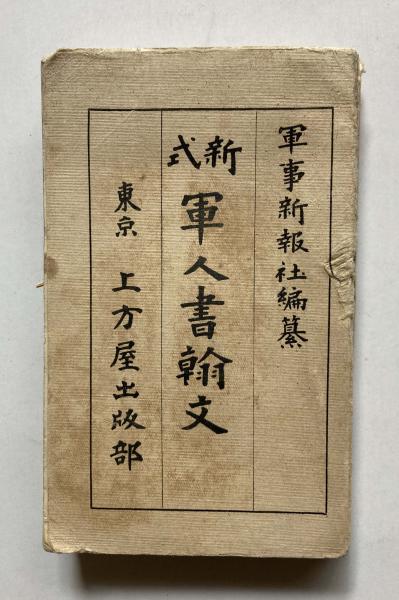 軍事新報社編纂
新式
軍人書翰文
東京
上方屋出版部